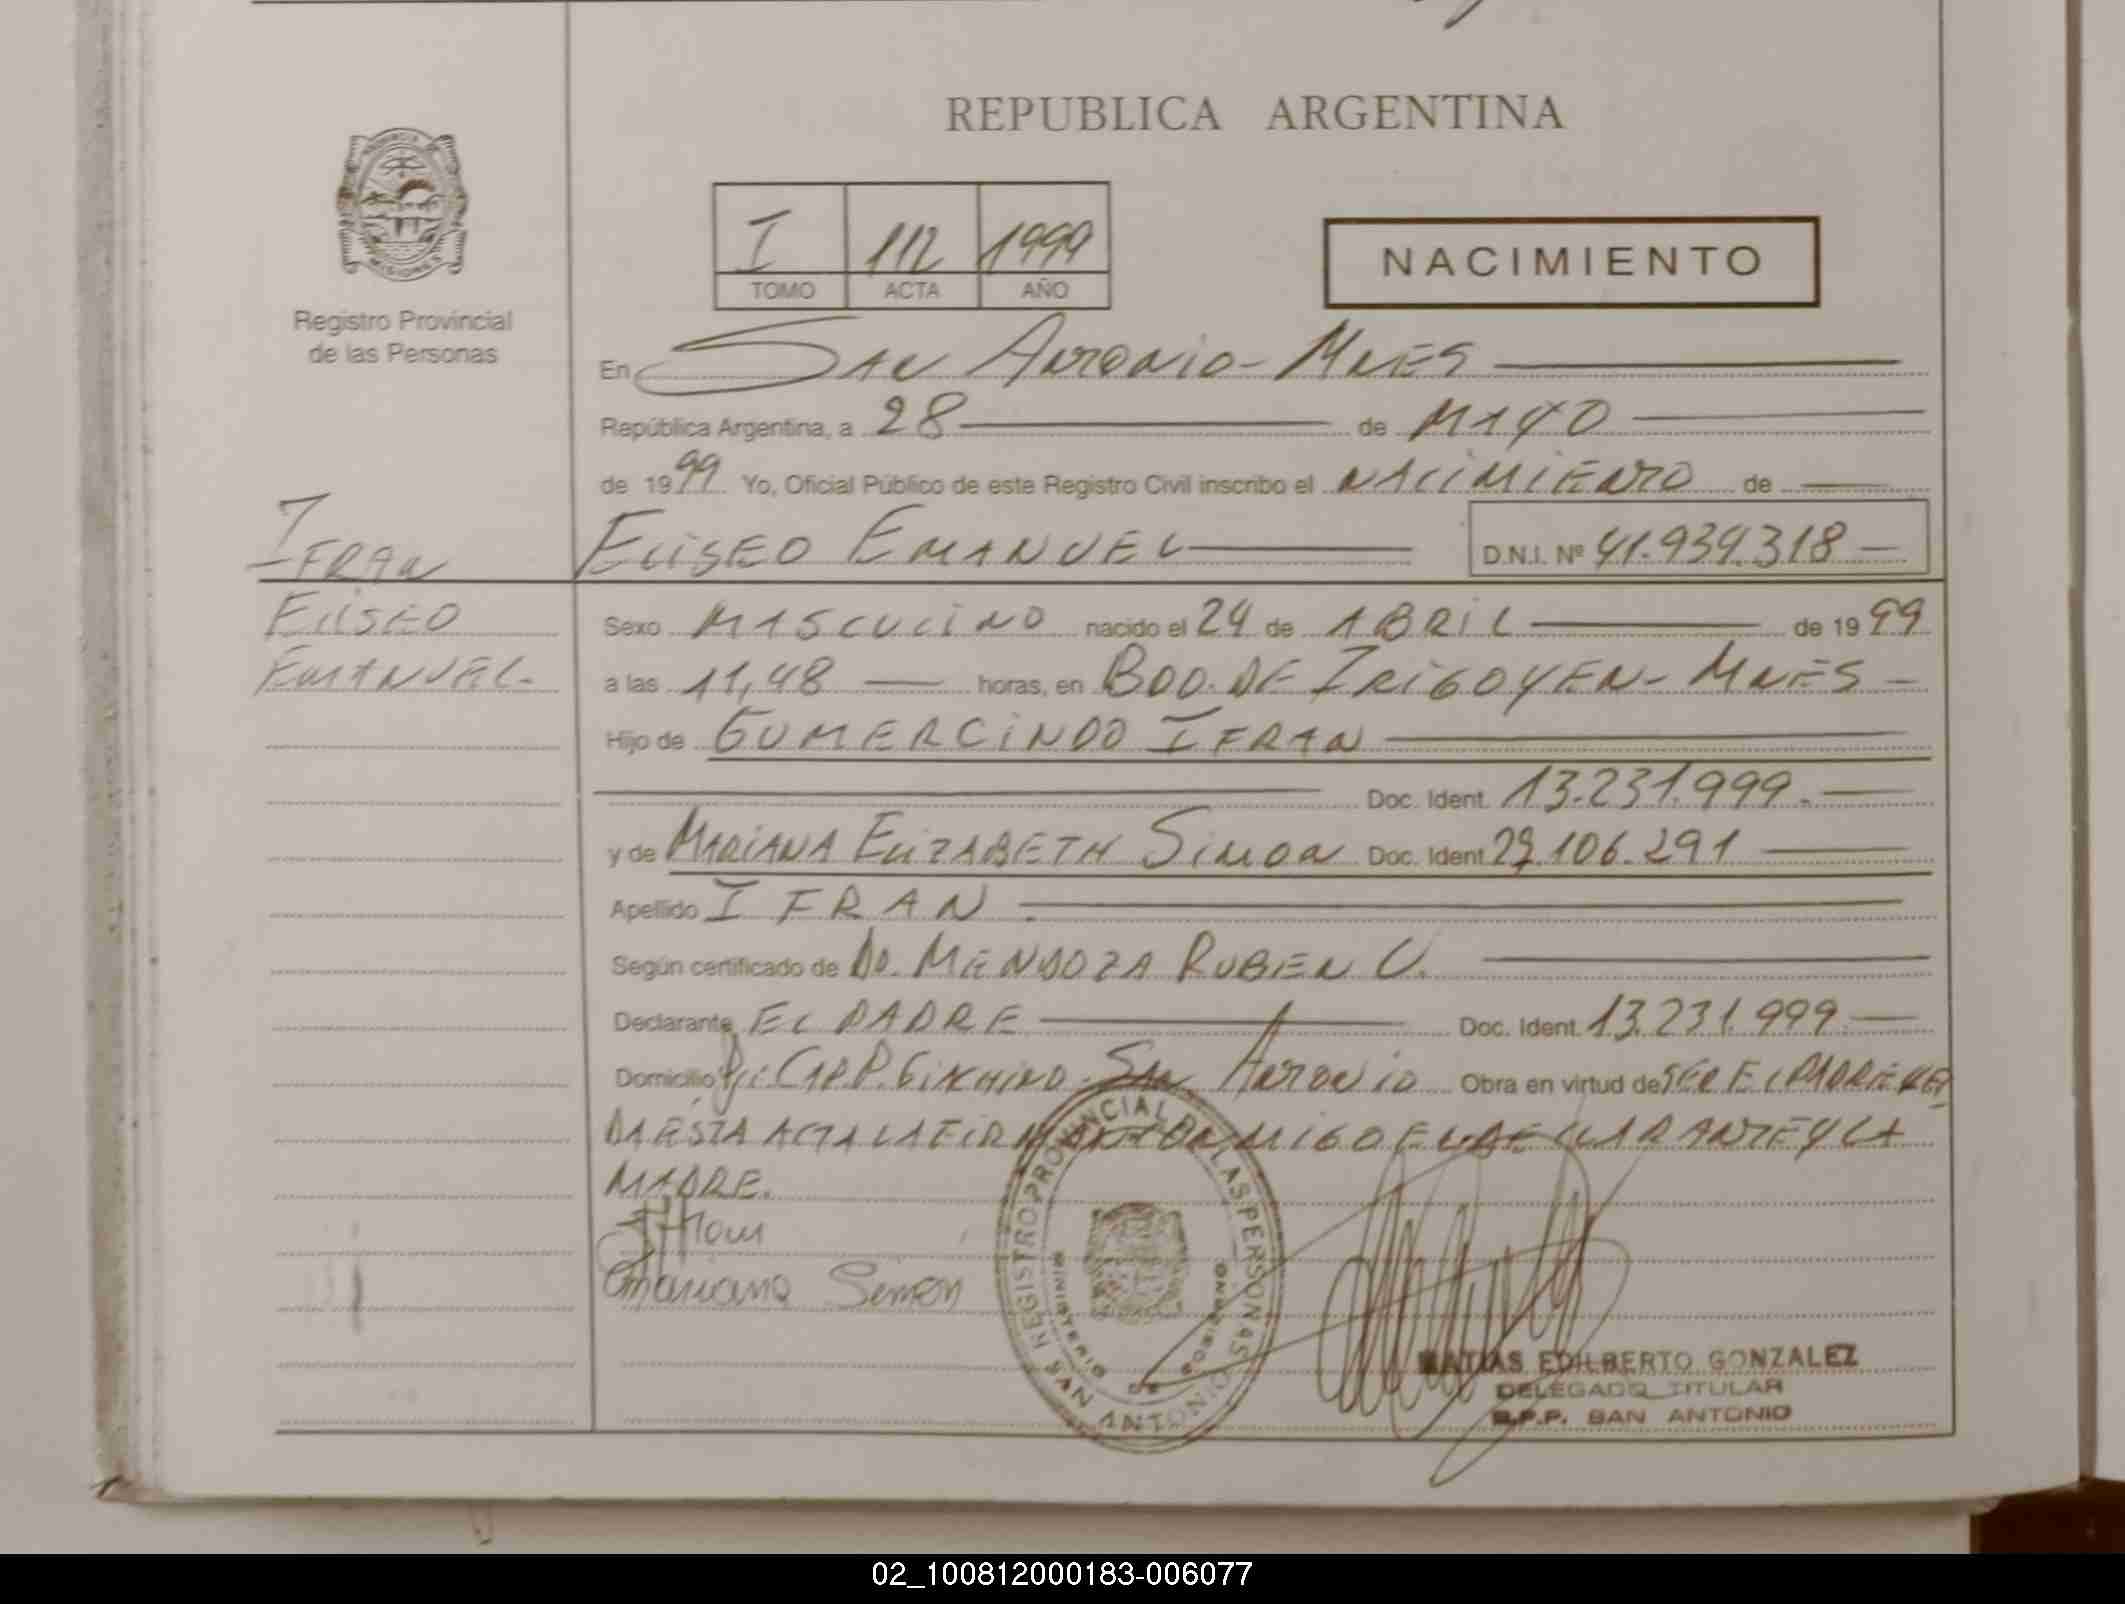 REPUBLICA ARGENTINA
PROVINCIA DE
MISIONES
Registro Provincial
de las Personas
I 112 1999
TOMO ACTA AÑO
NACIMIENTO
En SAN ANTONIO - MNES
República Argentina, a 28 de MAYO
de 1999 Yo, Oficial Público de este Registro Civil inscribo el NACIMIENTO de
IFRAN
ELISEO
EMANUEL.
ELISEO EMANUEL D.N.I. Nº 41.939.318
Sexo MASCULINO nacido el 24 de ABRIL de 1999
a las 11,48 horas, en BDO. DE IRIGOYEN - MNES
Hijo de GUMERCINDO IFRAN
Doc. Ident. 13.231.999.
y de MARIANA ELIZABETH SIMON Doc. Ident. 29.106.291
Apellido IFRAN.
Según certificado de DO. MENDOZA RUBEN U.
Declarante EL PADRE Doc. Ident. 13.231.999
Domicilio SAN ANTONIO Obra en virtud de SER EL PADRE LEI
DA ESTA ACTA LA FIRMAN CONMIGO EL DECLARANTE Y LA
MADRE.
Mariana Simon
REGISTRO PROVINCIAL DE LAS PERSONAS
MINISTERIO DE GOBIERNO
SAN ANTONIO
MATIAS EDILBERTO GONZALEZ
DELEGADO TITULAR
R.P.P. SAN ANTONIO
02_100812000183-006077